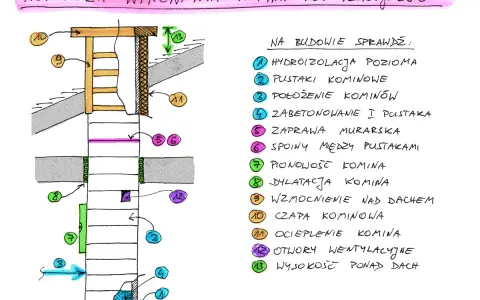 NA BUDOWIE SPRAWDŹ:
1 HYDROIZOLACJA POZIOMA
2 PUSTAKI KOMINOWE
3 POŁOŻENIE KOMINÓW
4 ZABETONOWANIE I PUSTAKA
5 ZAPRAWA MURARSKA
6 SPOINY MIĘDZY PUSTAKAMI
7 PIONOWOŚĆ KOMINA
8 DYLATACJA KOMINA
9 WZMOCNIENIE NAD DACHEM
10 CZAPA KOMINOWA
11 OCIEPLENIE KOMINA
12 OTWORY WENTYLACYJNE
13 WYSOKOŚĆ PONAD DACH
10
13
9
11
5 6
8
12
7
2
3
4
1